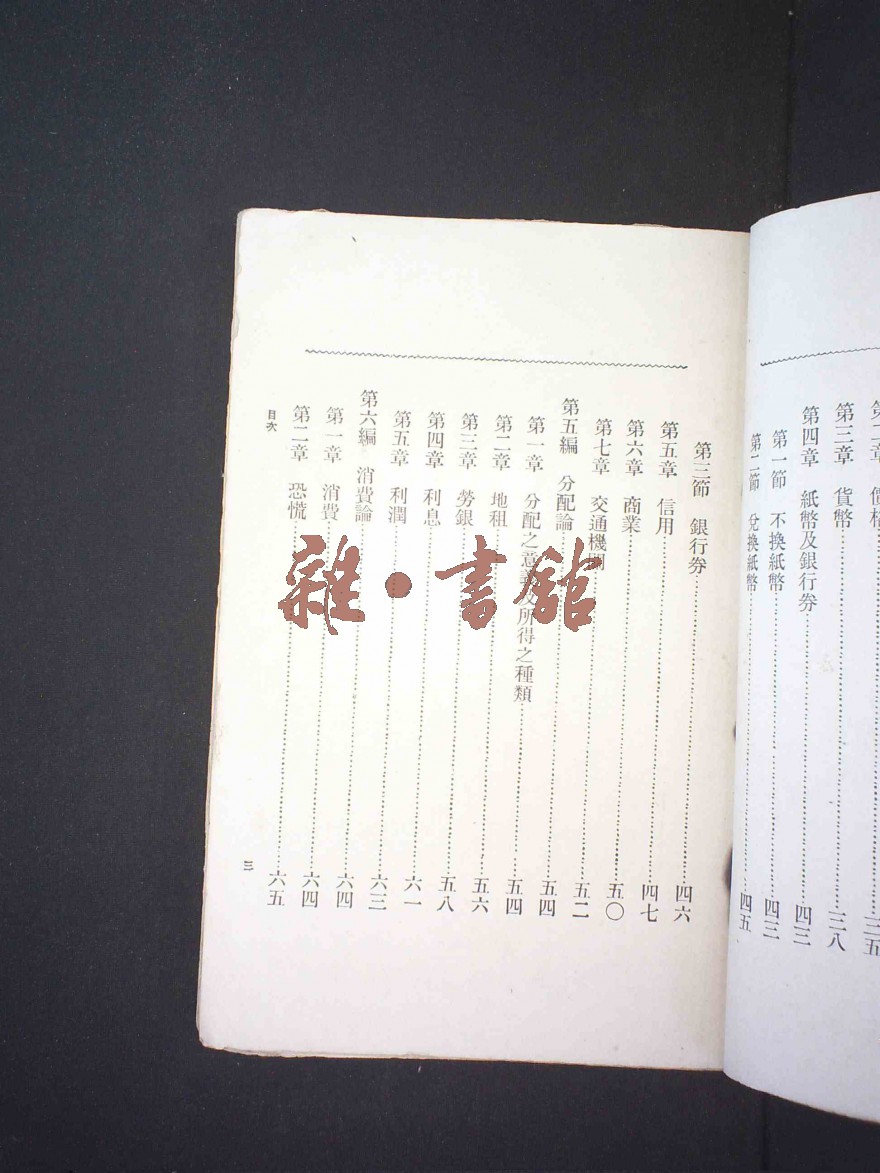 第二章 價格 三五
第三章 貨幣 三八
第四章 紙幣及銀行券 四三
第一節 不換紙幣 四三
第二節 兌換紙幣 四五
第三節 銀行券 四六
第五章 信用 四七
第六章 商業 五〇
第七章 交通機關 五二
第五編 分配論 五四
第一章 分配之意義及所得之種類 五四
第二章 地租 五六
第三章 勞銀 五八
第四章 利息 六一
第五章 利潤 六三
第六編 消費論 六四
第一章 消費 六四
第二章 恐慌 六五
目次 三
雜·書館